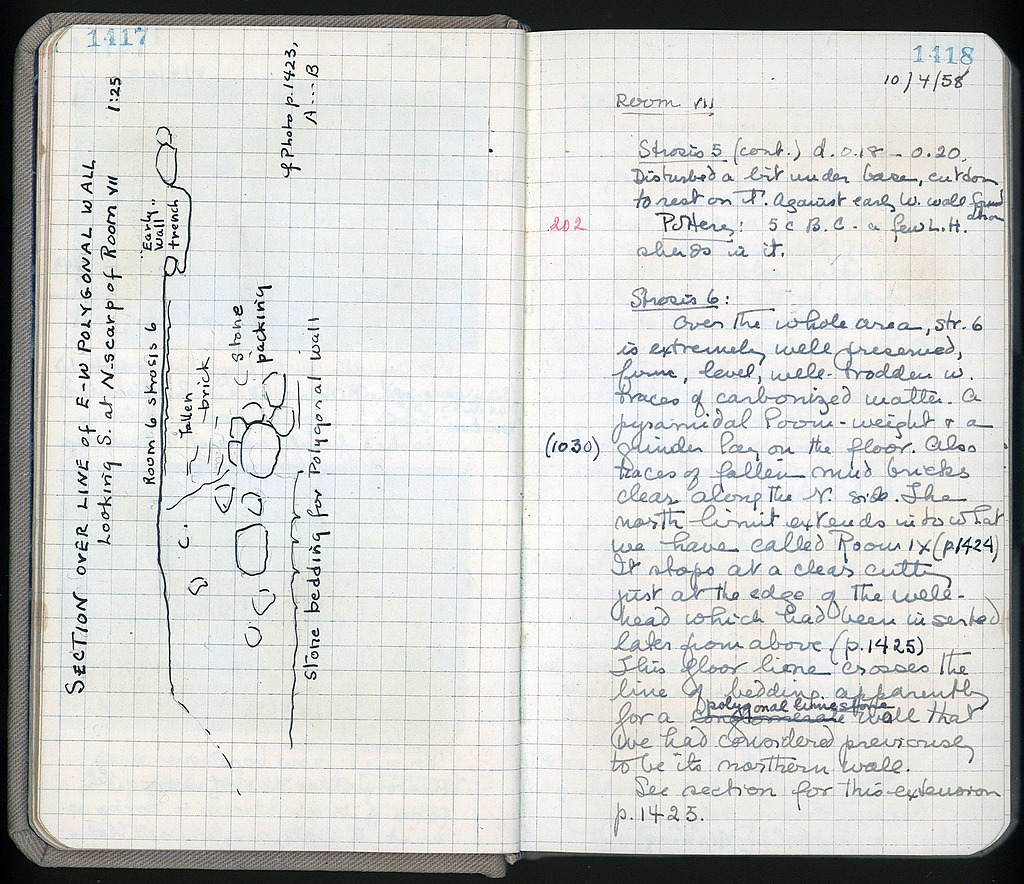 1417
SECTION OVER LINE OF E-W POLYGONAL WALL
Looking S. at N-scarp of Room VII
1:25
Room 6 strosis 6
"Early"
Wall
trench
cf Photo p.1423,
A....B
fallen
brick
Stone
packing
Stone bedding for Polygonal Wall
1418
10/4/58
Room VII
Strosis 5 (cont.) d. 0.18 - 0.20.
Disturbed a bit under base, cut down
to rest on it. Against early W. wall foundation
202
Pottery: 5 c B.C. - a few L.H.
sherds in it.
Strosis 6:
Over the whole area, str. 6
is extremely well preserved,
firm, level, well-trodden w.
traces of carbonized matter. A
pyramidal loom-weight & a
(1030)
grinder lay on the floor. Also
traces of fallen mud bricks
clear along the N. side. The
north limit extends into what
we have called Room IX (p.1424)
It stops at a clear cutting
just at the edge of the well-
head which had been inserted
later from above (p.1425)
This floor line crosses the
line of bedding apparently
polygonal limestone
for a conglomerate wall that
we had considered previously
to be its northern wall.
See section for this extension
p.1425.